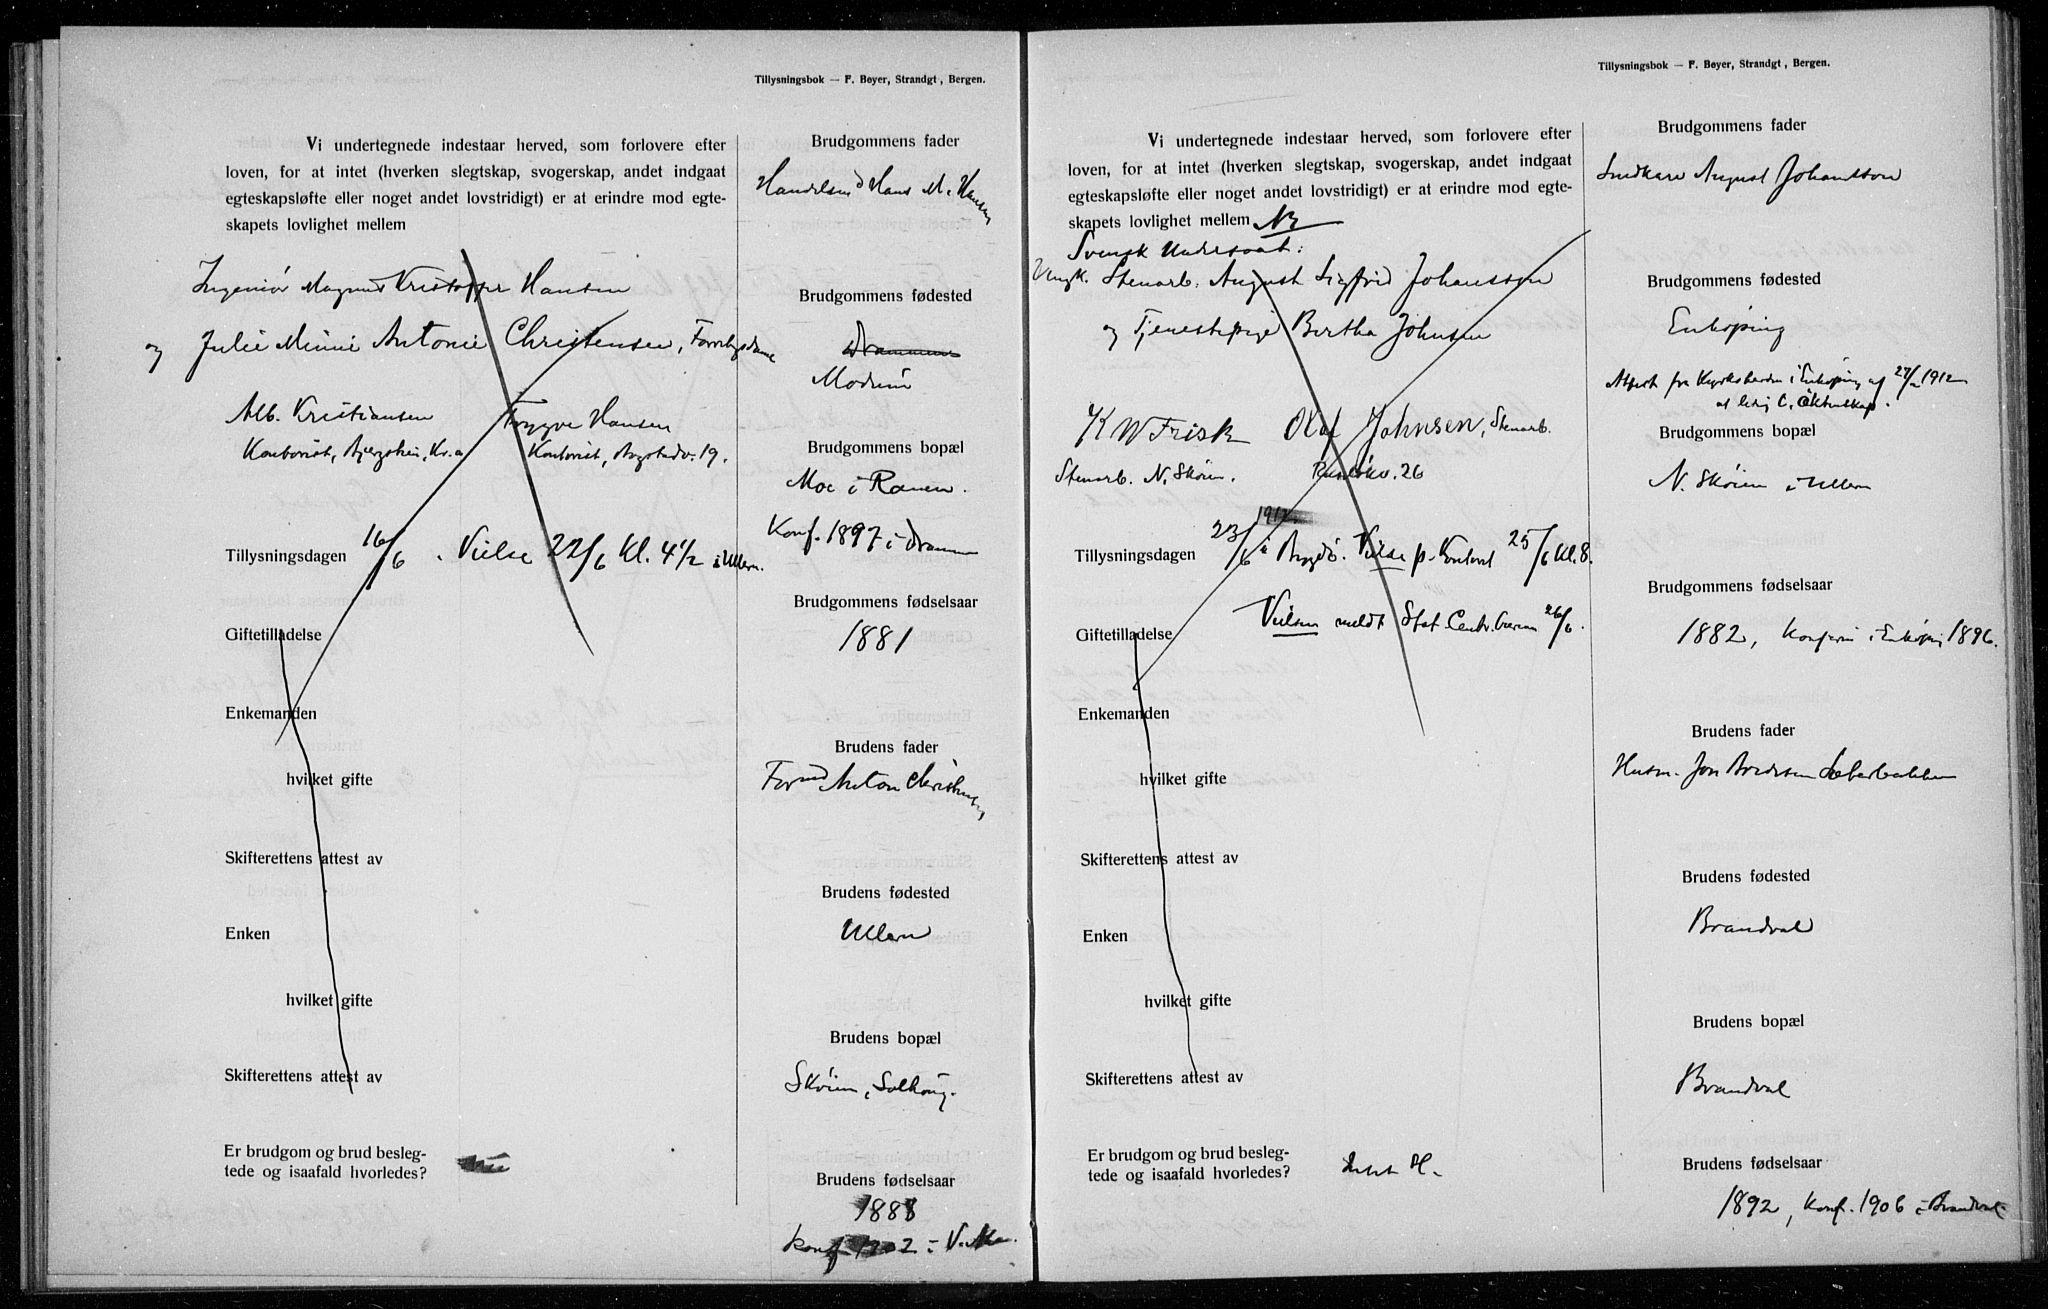 Tillysningsbok — F. Beyer, Strandgt, Bergen.
Vi undertegnede indestaar herved, som forlovere efter
loven, for at intet (hverken slegtskap, svogerskap, andet indgaat
egteskapsløfte eller noget andet lovstridigt) er at erindre mod egte-
skapets lovlighet mellem
Ingeniør Magnus Kristoffer Hansen
og Julie Minni Antonie Christensen,
Alb. Kristiansen
Kontorist, Bjergstien, Kr.a
Trygve Hansen
Kontorist, 19.
Tillysningsdagen 16/6. Vielse 22/6 Kl. 4 1/2 i Ullern.
Giftetilladelse
Enkemanden
hvilket gifte
Skifterettens attest av
Enken
hvilket gifte
Skifterettens attest av
Er brudgom og brud besleg-
tede og isaafald hvorledes?
Brudgommens fader
Handelsmd Hans M. Hansen
Brudgommens fødested
Drammen
Modum
Brudgommens bopæl
Moe i Ranen.
Konf. 1897 i Drammen
Brudgommens fødselsaar
1881
Brudens fader
Anton Christensen
Brudens fødested
Ullern
Brudens bopæl
Skøien, Solhaug.
Brudens fødselsaar
1888
konf. 1902 i V. Aker.
Tillysningsbok — F. Beyer, Strandgt, Bergen.
Vi undertegnede indestaar herved, som forlovere efter
loven, for at intet (hverken slegtskap, svogerskap, andet indgaat
egteskapsløfte eller noget andet lovstridigt) er at erindre mod egte-
skapets lovlighet mellem NB
Svensk Undersaat:
Ungk. Stenarb. August Sigfrid Johansson
og Tjenestepige Bertha Johnsen
K W Frisk
Stenarb. N. Skøien.
Olaf Johnsen, Stenarb.
26
1912
Tillysningsdagen 23/6 i Bygdø. Vielse p. Kontoret 25/6 Kl. 8.
Vielsen meldt Stat. Centr. 26/6.
Giftetilladelse
Enkemanden
hvilket gifte
Skifterettens attest av
Enken
hvilket gifte
Skifterettens attest av
Er brudgom og brud besleg-
tede og isaafald hvorledes?
Brudgommens fader
August Johansson
Brudgommens fødested
Enköping
Attest fra Kyrkoherden i Enköping af 27/2 1912
Brudgommens bopæl
N. Skøien i Ullern
Brudgommens fødselsaar
1882, Konfirm i Enköping 1896.
Brudens fader
Husm. Jon
Brudens fødested
Brandval
Brudens bopæl
Brandval
Brudens fødselsaar
1892, Konf. 1906 i Brandval